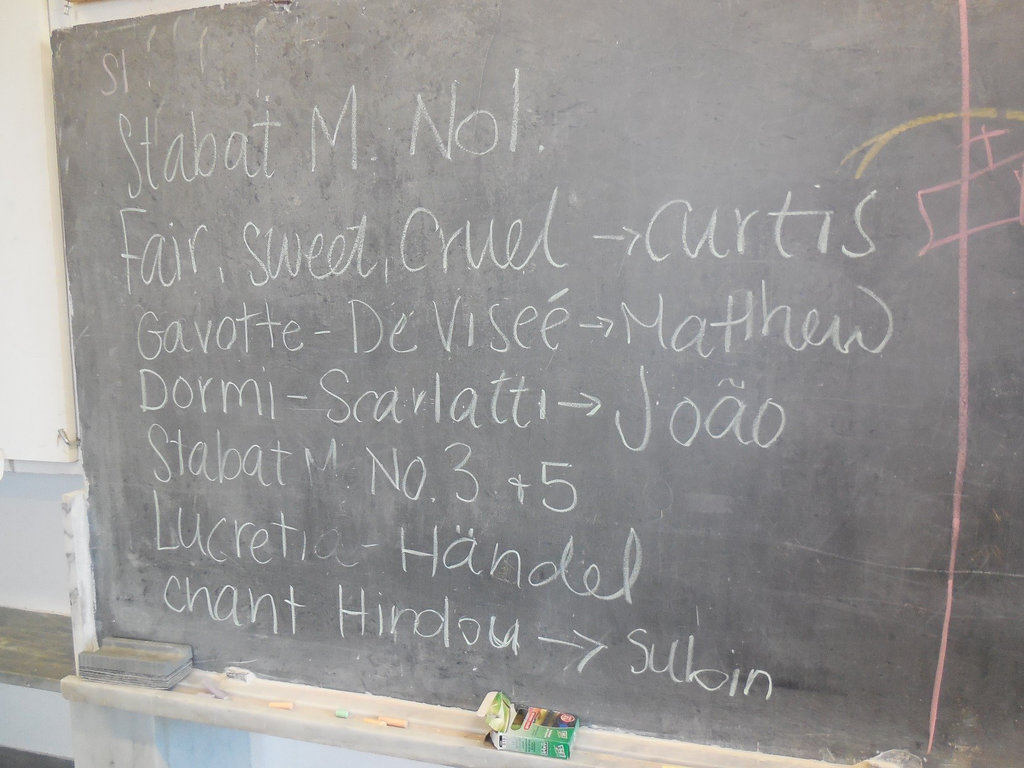 SI
Stabat M. No1.
Fair, sweet, cruel → curtis
Gavotte - De Viseé → Matthew
Dormi - Scarlatti → João
Stabat M. No. 3 + 5
Lucretia - Händel
chant Hindou → subin